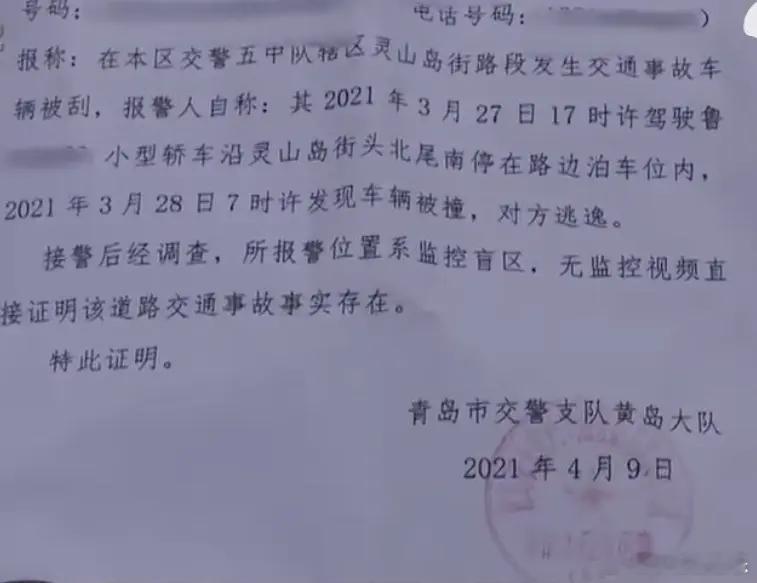 号码：
电话号码：）
报称：在本区交警五中队辖区灵山岛街路段发生交通事故车
辆被刮，报警人自称：其 2021 年 3 月 27 日 17 时许驾驶鲁
小型轿车沿灵山岛街头北尾南停在路边泊车位内，
2021 年 3 月 28 日 7 时许发现车辆被撞，对方逃逸。
接警后经调查，所报警位置系监控盲区，无监控视频直
接证明该道路交通事故事实存在。
特此证明。
青岛市交警支队黄岛大队
2021 年 4 月 9 日